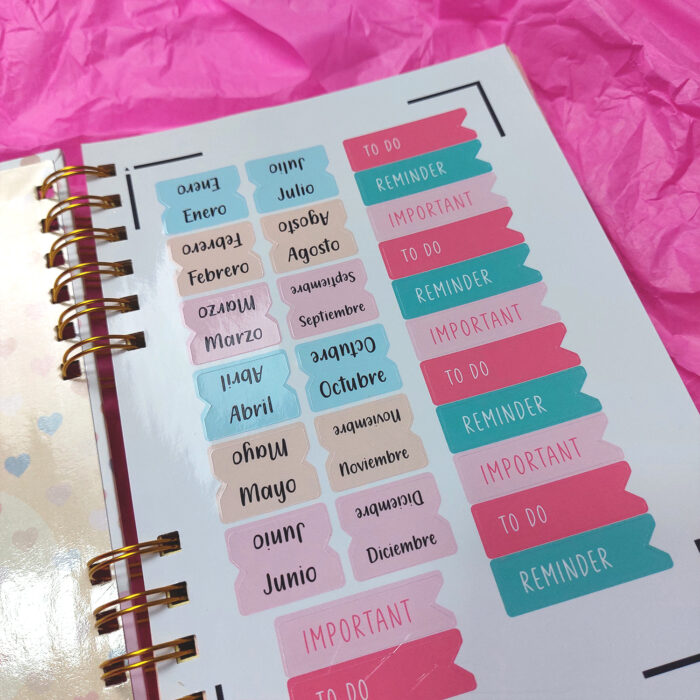 Enero
Enero
Febrero
Febrero
Marzo
Marzo
Abril
Abril
Mayo
Mayo
Junio
Junio
Julio
Julio
Agosto
Agosto
Septiembre
Septiembre
Octubre
Octubre
Noviembre
Noviembre
Diciembre
Diciembre
TO DO
REMINDER
IMPORTANT
TO DO
REMINDER
IMPORTANT
TO DO
REMINDER
IMPORTANT
TO DO
REMINDER
IMPORTANT
TO DO